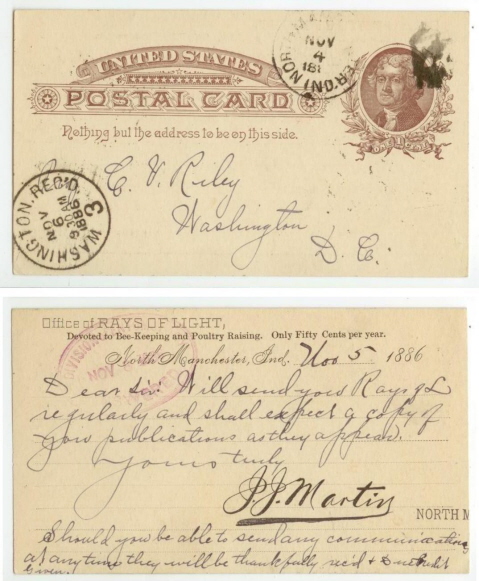 UNITED STATES
POSTAL CARD
Nothing but the address to be on this side.
NOV
4
C. V. Riley
Washington
D. C.
WASHINGTON. REC'D.
NOV
6
930AM
1886
3
Office of RAYS OF LIGHT,
Devoted to Bee-Keeping and Poultry Raising. Only Fifty Cents per year.
North Manchester, Ind. Nov 5 1886
DIVISION
NOV
Dear Sir: Will send you Rays of L
regularly and shall expect a copy of
your publications as they appear.
Yours truly
J. J. Martin
NORTH M
Should you be able to send any communications
at any time they will be thankfully rec'd & Due Credit
Given.